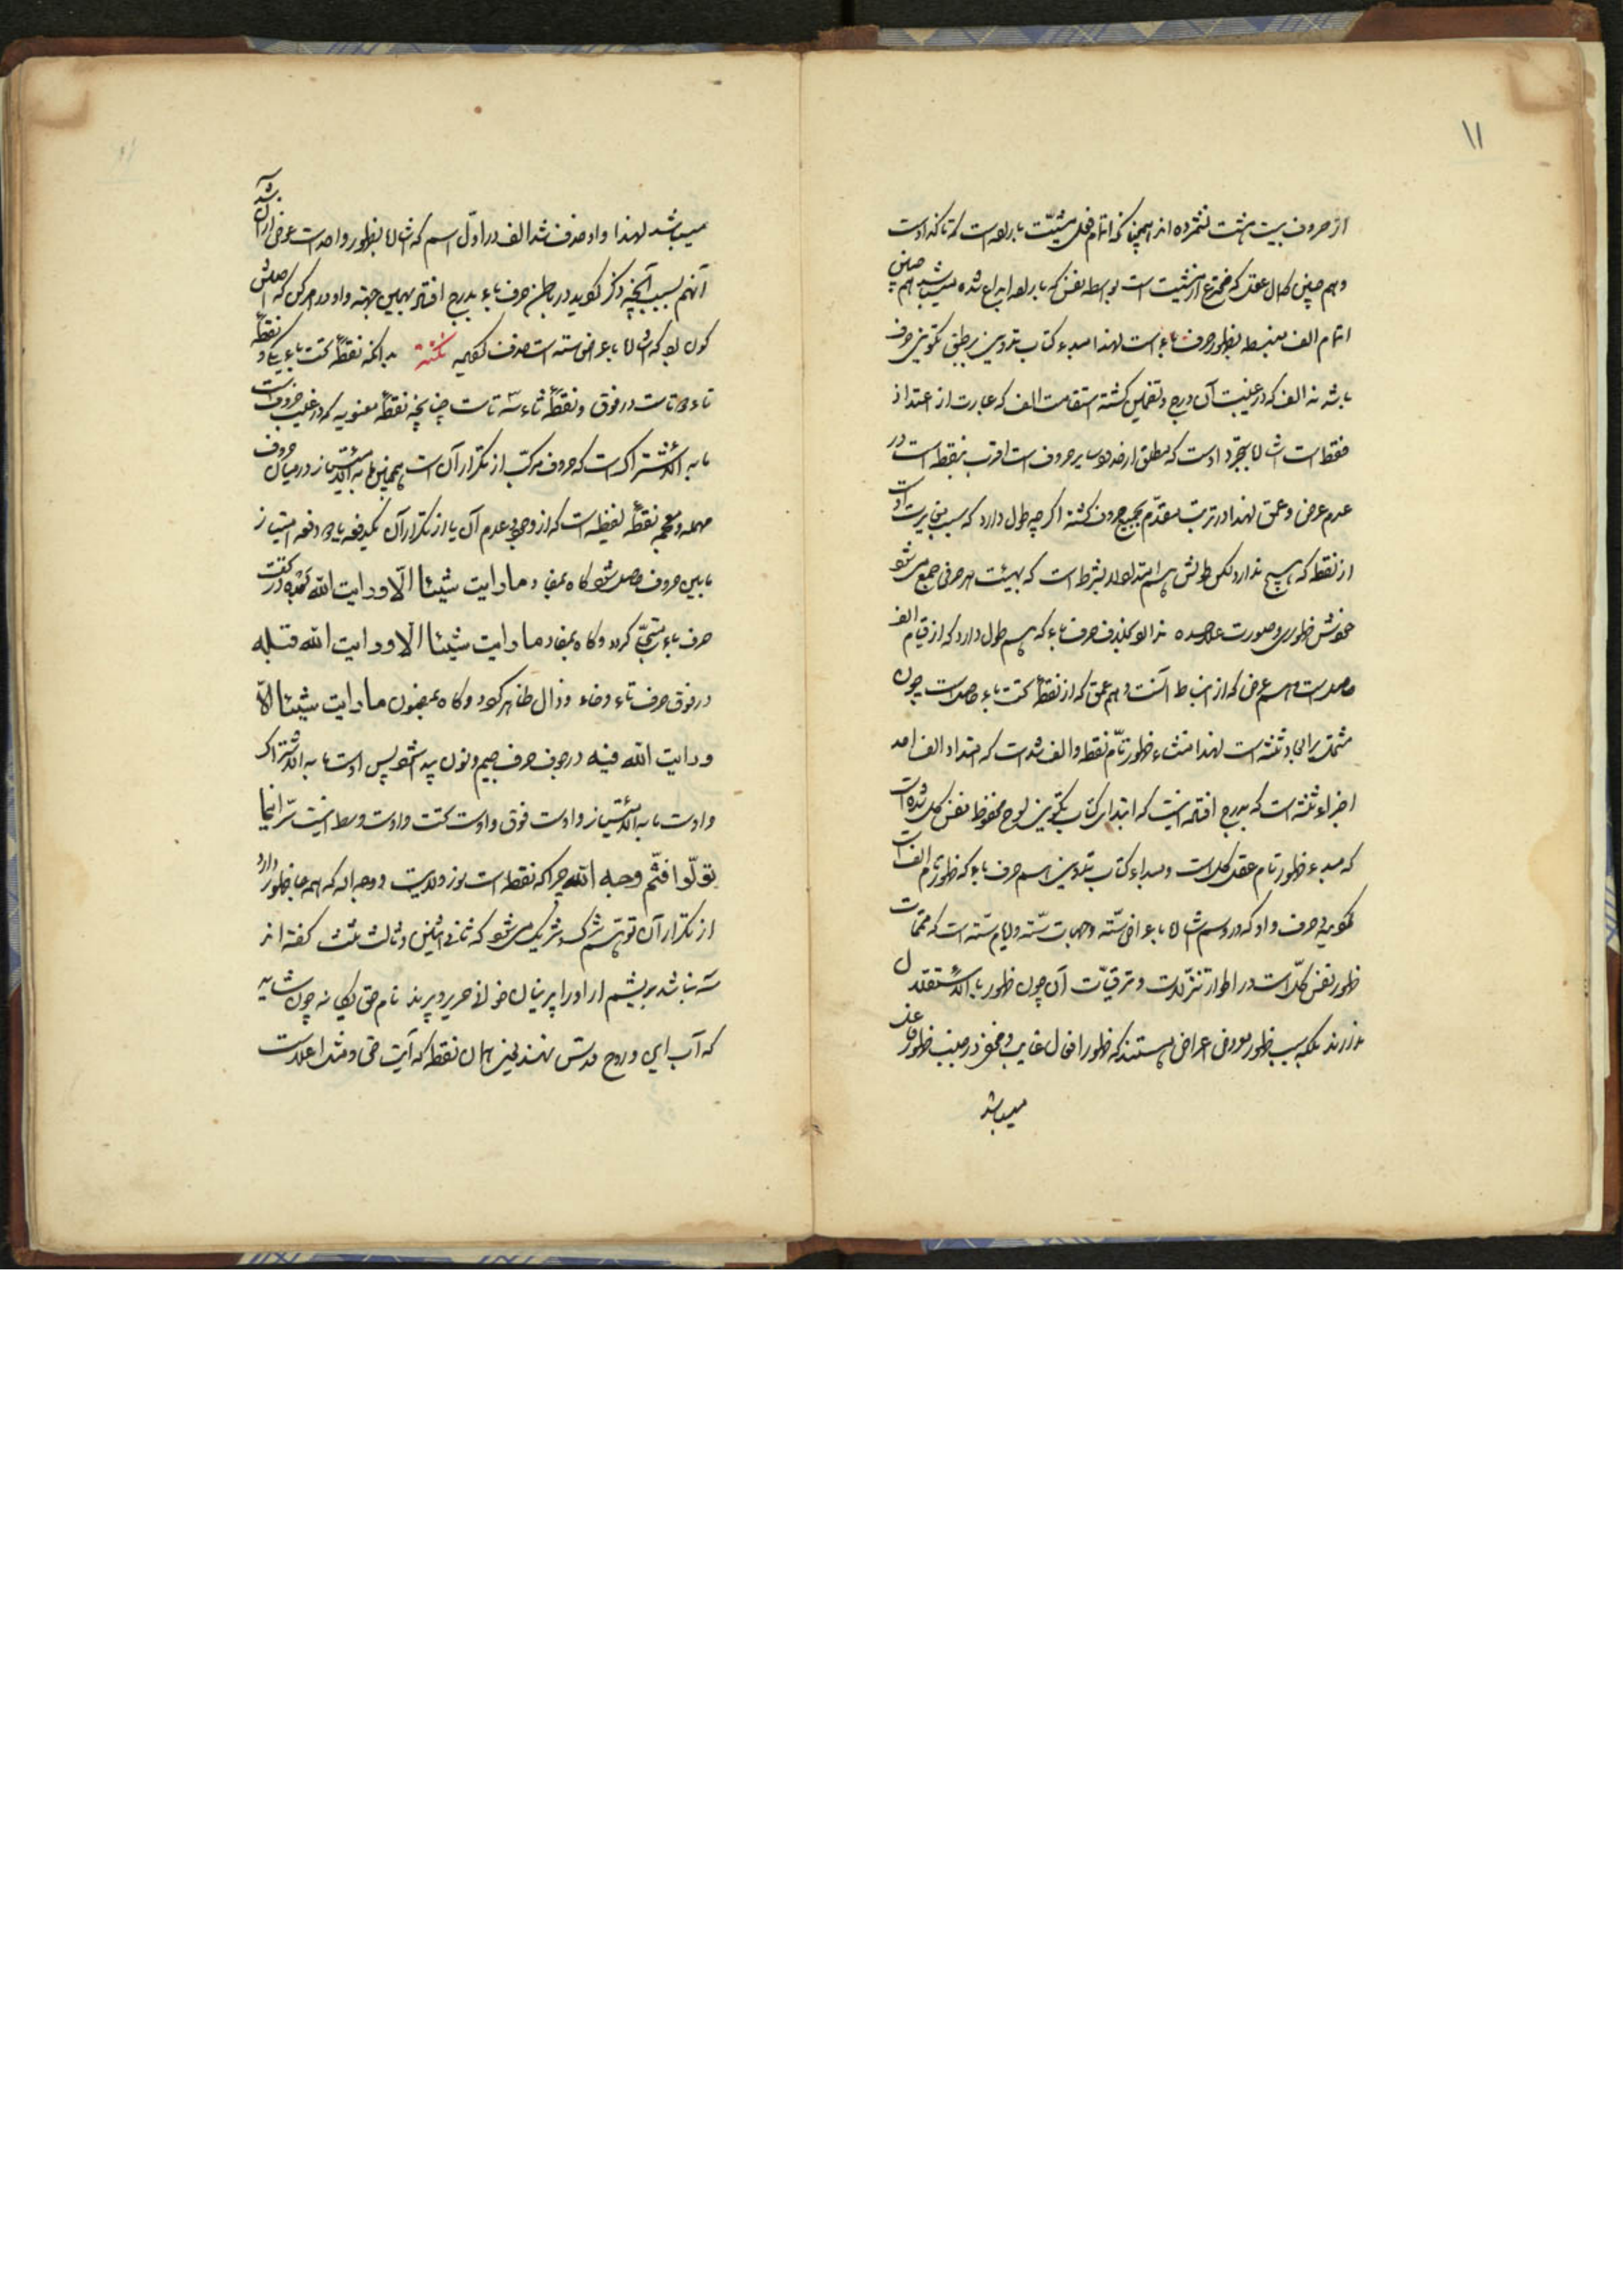 ۱۱
از حروف بیست هشت نشمرده اند همچنانکه اتمام فعل مشیّت بار بعد است که تاکه اوست
وهم چنین کمال عقل که مخترع از مشیت است بواسطه نفس که بار بعد ابداع شده میباشد هم چنین
اتمام الف منبسط بظهور حرف باء است لهذا مبدء کتاب تدوین بر طبق تکوین حرف
باشد نه الف که در غیبت آن درج و تضمین گشته استقامت الف که عبارت از امتداد از
نقطه است اشاره بتجرد اوست که مطلق از قیود سایر حروف است اقرب بنقطه است در
عدم عرض و عمق لهذا در ترتیب مقدّم بجمیع حروف گشته اگرچه طول دارد که سبب مغایرت اوست
از نقطه که هیچ ندارد لکن طولش هم امتداد لا بشرط است که بهیئت هر حرفی جمع می شود
خودش ظهوری و صورت علاحده ندارد بخلاف حرف باء که هم طول دارد که از قیام الف
حاصل است و هم عرض که از انبساط آنست و هم عمق که از نقطهٔ تحت باء حاصل است چون
مشتمل بر ابعاد ثلثه است لهذا منشاء ظهور تامّ نقطه و الف شده است که امتداد الف احد
اجزاء ثلثه است که بدرج افتاده اینست که ابتدای کتاب تکوین لوح محفوظ نفس کل شده است
که مبدء ظهور تام عقل کل است و مبداء کتاب تدوین اسم حرف باء که ظهور تام الف است
تکوینی حرف واو که در وسم اشاره باعراض ستّه و جهات ستّه و ایام ستّه است که متممات
ظهور نفس کلّ است در اطوار تنزّلات و ترقیّات آن چون ظهور بالاستقلال
ندارند بلکه بسبب ظهور معروض اعراض هستند که ظهور افعال غایب و مخفی در جنب ظهور فاعل
میباشد
میباشد لهذا واو حذف شد الف در اوّل اسم که اشاره بظهور واحد است عوض از آن شد
آنهم بسبب آنچه ذکر گردید در باطن حرف باء بدرج افتاد بهمین جهته واو در هر کس که اصلش
کون بود که اشاره باعراض سته است حذف گفتیم نکته بدانکه نقطهٔ تحت باء یکی و نقطهٔ
تاء دو تاست در فوق و نقطهٔ ثاء سه تاست چنانچه نقطهٔ معنویه که در غیب حروف است
ما به الاشتراک است که حروف مرکّب از تکرار آن است همچنین ما به الامتیاز در میان حروف
مهمله و معجمه نقطهٔ لفظیه است که از وجود و عدم آن یا از تکرار آن بیکدفعه یا دو دفعه امتیاز
مابین حروف حاصل شود گاه بمفاد ما رایت شیئا الّا و رایت الله تحته در تحت
حرف باء تجلّی کرد و گاه بمفاد ما رایت شیئا الا و رایت الله قبله
در فوق حرف تاء و خاء و ذال ظاهر گردد و گاه بمضمون ما رایت شیئا الّا
و رایت الله فیه در جوف حرف جیم و نون پیدا شود پس اوست ما به الاشتراک
و اوست ما به الامتیاز و اوست فوق و اوست تحت و اوست وسط اینست سرّ اینما
تولّوا فثمّ وجه الله چراکه نقطه است نور ولایت و وجه اله که همه جا ظهور دارد
از تکرار آن توهّم شرک و شریک می شود که ثانی اثنین و ثالث ثلث گفته اند
سه نباشد بریشم ار او را پرنیان خوانی و حریر و پرند نام حق یکی نه چون سه شاید
که آب ابن و روح قدس نهند یعنی همان نقطه که آیت حق و مثل اعلاست